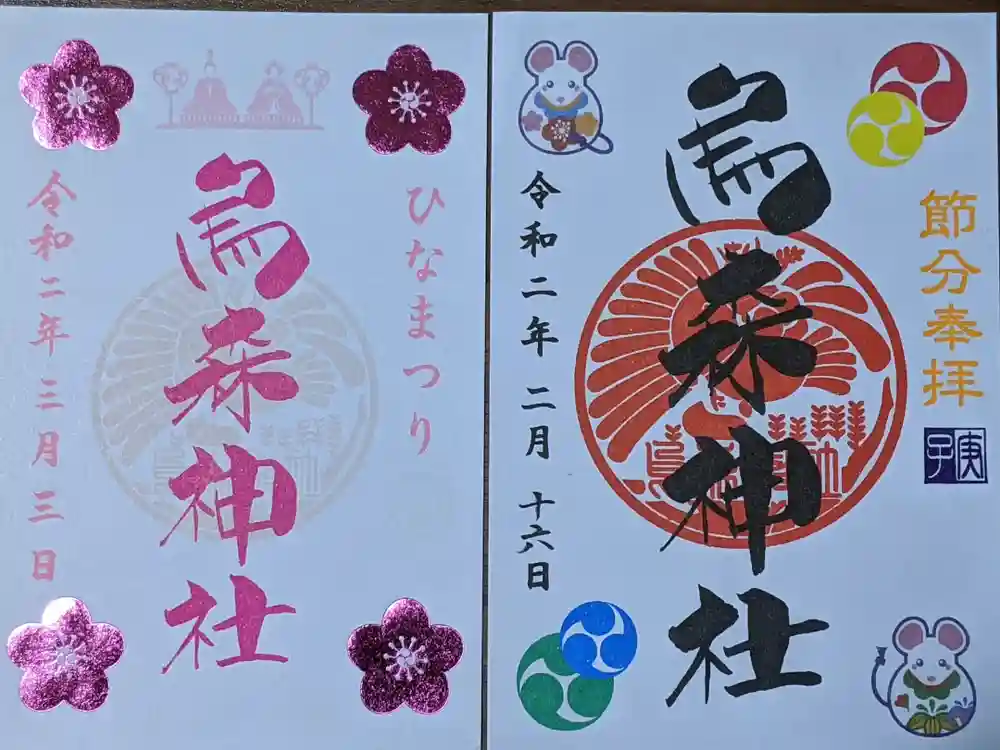 ひなまつり
烏森神社
令和二年 三月 三日
節分奉拝
庚子
烏森神社
令和二年 二月 十六日